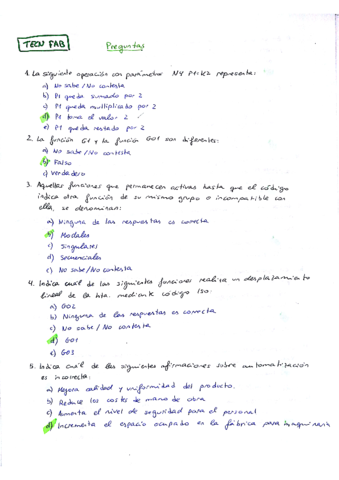 TECN FAB
Preguntas
1. La siguiente operación con parámetros N4 P1=K2 representa:
a) No sabe / No contesta
b) P1 queda sumado por 2
c) P1 queda multiplicado por 2
d) P1 toma el valor 2
e) P1 queda restado por 2
2. La función G1 y la función G01 son diferentes:
a) No sabe / No contesta
b) Falso
c) Verdadero
3. Aquellas funciones que permanecen activas hasta que el código
indica otra función de su mismo grupo o incompatible con
ella, se denominan:
a) Ninguna de las respuestas es correcta
b) Modales
c) Singulares
d) Secuenciales
e) No sabe / No contesta
4. Indica cuál de las siguientes funciones realiza un desplazamiento
lineal de la hta. mediante código ISO:
a) G02
b) Ninguna de las respuestas es correcta
c) No sabe / No contesta
d) G01
e) G03
5. Indica cuál de las siguientes afirmaciones sobre automatización
es incorrecta:
a) Mejora calidad y uniformidad del producto.
b) Reduce los costes de mano de obra
c) Aumenta el nivel de seguridad para el personal
d) Incrementa el espacio ocupado en la fábrica para maquinaria